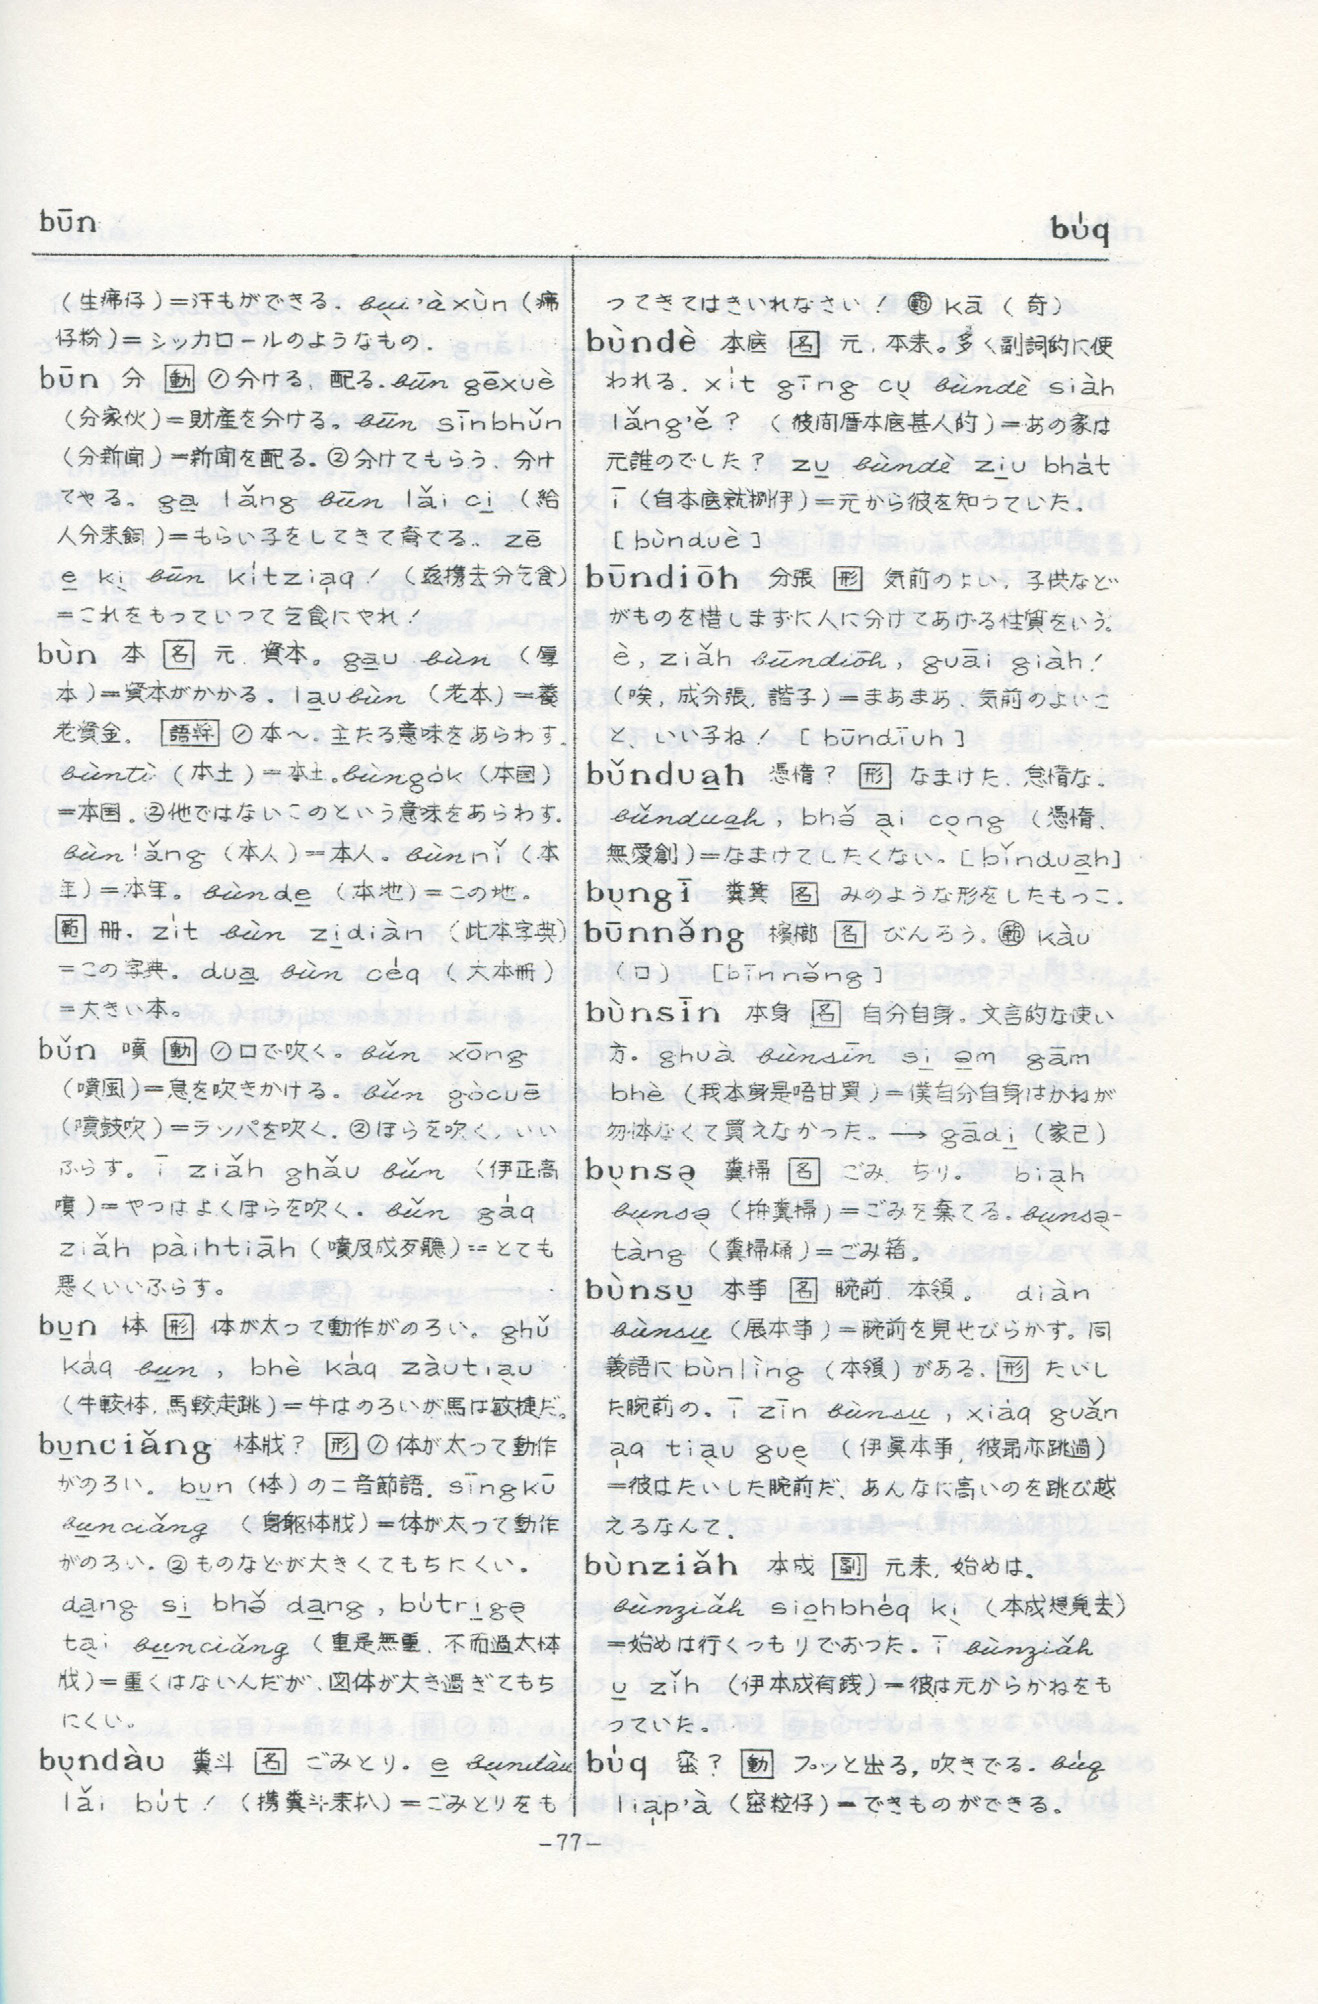 būn
bu̍q
(生痱仔)=汗もができる. bui̤'àxùn (痱
仔粉)=シッカロールのようなもの.
būn 分 動 ①分ける, 配る. būn gēxuè
(分家伙)=財產を分ける。būn sīnbhǔn
(分新聞)=新聞を配る。②分けてもらう、分け
てやる。ga̱ lǎng būn lǎi ci̱ (給
人分来飼)=もらい子をしてきて育てる。zē
e̱ ki̤ būn ki̍tzia̍q! (茲携去分乞食)
=これをもっていって乞食にやれ!
bùn 本 名 元, 資本。ga̱u bùn (厚
本)=資本がかかる。la̱ubùn (老本)=養
老資金. 語幹 ①本〜, 主たる意味をあらわす.
bùntì (本土)=本土. bùngo̍k (本國)
=本国. ②他ではないこのという意味をあらわす.
bùnlǎng (本人)=本人。bùnnǐ (本
年)=本年。bùnde̱ (本地)=この地。
範 冊. zi̍t bùn zi̱diàn (此本字典)
=この字典。dua̱ bùn cɛ́q (大本冊)
=大きい本。
bǔn 噴 動 ①口で吹く。bǔn xōng
(噴風)=息を吹きかける。bǔn gòcuē
(噴鼓吹)=ランパを吹く. ②ほらを吹く, いい
ふらす。ī ziǎh ghǎu bǔn (伊正高
噴)=やつはよくほらを吹く。bǔn ga̍q
ziǎh pàihtiāh (噴及成歹聽)=とても
悪くいいふらす。
bu̱n 体 形 体が太って動作がのろい。ghǔ
ka̍q bu̱n, bhè ka̍q zàutia̤u
(牛較体, 馬較走跳)=牛はのろいが馬は敏捷だ。
bu̱nciǎng 体戕? 形 ①体が太って動作
がのろい。bu̱n (体)の二音節語. sīngkū
bu̱nciǎng (身軀体戕)=体が太って動作
がのろい. ②ものなどが大きくてもちにくい。
da̱ng si̱ bhə̌ da̱ng, bu̍tri̱gə̤
ta̤i bu̱nciǎng (重是無重, 不而過太体
戕)=重くはないんだが, 図体が大き過ぎてもち
にくい。
bṳndàu 糞斗 名 ごみとり. e̱ bṳndàu
lǎi bu̍t! (携糞斗来扒)=ごみとりをも
つてきてはきいれなさい! 範 kā (奇)
bùndè 本底 名 元, 本来。多く副詞的に使
われる. xi̍t gīng cṳ bùndè siàh
lǎng'ě? (彼間厝本底甚人的)=あの家は
元誰のでした? zu̱ bùndè ziu̱ bha̍t
ī (自本底就捌伊)=元から彼を知っていた.
[bùnduè]
būndiōh 分張 形 気前のよい, 子供など
がものを惜しまずに人に分けてあげる性質をいう.
è, ziǎh būndiōh, guāi giàh!
(唉, 成分張, 諧子)=まあまあ, 気前のよいこ
と, いい子ね! [būndīuh]
bǔndua̱h 憑惰? 形 なまけた, 怠惰な.
bǔndua̱h, bhə̌ a̤i co̤ng (憑惰,
無愛創)=なまけてしたくない. [bǐndua̱h]
bṳngī 糞箕 名 みのような形をしたもっこ.
būnnə̌ng 檳榔 名 びんろう. 範 kàu
(口) [bīnnə̌ng]
bùnsīn 本身 名 自分自身. 文言的な使い
方. ghuà bùnsīn si̱ ə̱m gām
bhè (我本身是唔甘買)=僕自分自身はかねが
勿体なくて買えなかった. → gādi̱ (家己)
bṳnsə̤ 糞掃 名 ごみ, ちり。 bia̤h
bṳnsə̤ (拚糞掃)=ごみを棄てる. bṳnsə̤-
tàng (糞掃桶)=ごみ箱。
bùnsu̱ 本事 名 腕前, 本領。 diàn
bùnsu̱ (展本事)=腕前を見せびらかす。同
義語に bùnlìng (本領)がある. 形 たいし
た腕前の. ī zīn bùnsu̱, xia̍q guǎn
a̍q tia̤u gue̤ (伊眞本事, 彼昻亦跳過)
=彼はたいした腕前だ, あんなに高いのを跳び越
えるなんて.
bùnziǎh 本成 副 元来, 始めは.
bùnziǎh sio̱hbhe̍q ki̤ (本成想覓去)
=始めは行くつもりであった. ī bùnziǎh
u̱ zǐh (伊本成有銭)=彼は元からかねをも
っていた。
bu̍q 宓? 動 プッと出る, 吹きでる. bu̍q
lia̍p'à (宓粒仔)=できものができる。
-77-